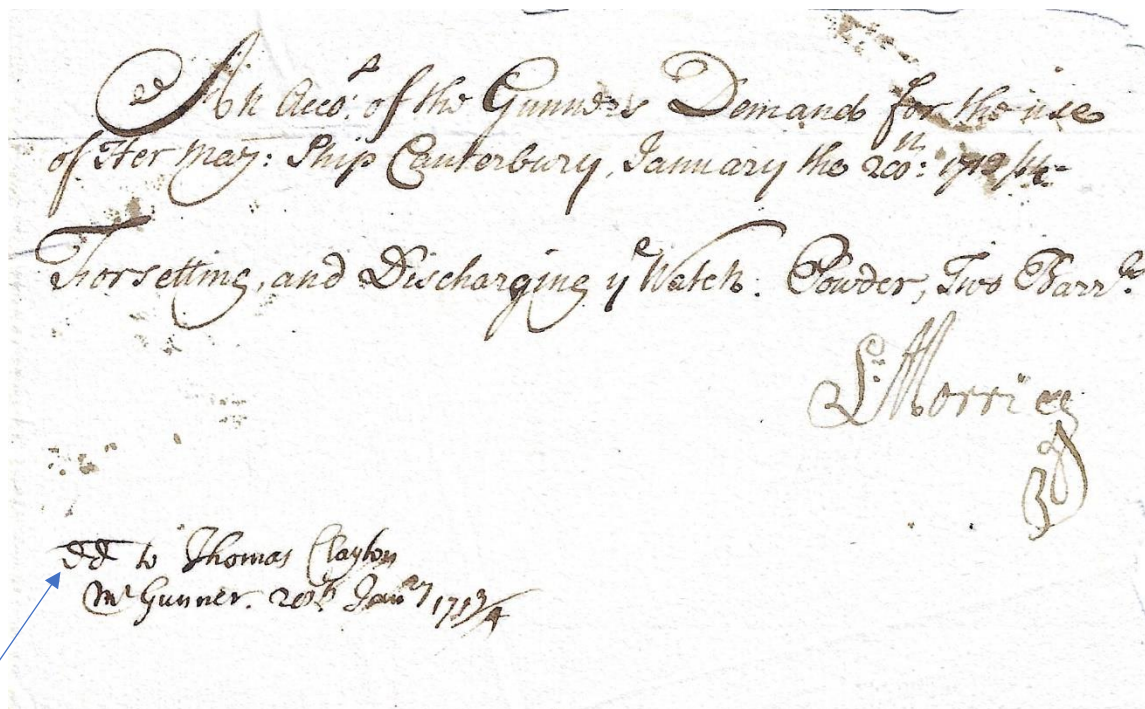 An Acco.t of the Gunners Demands for the use
of Her Maj: Ship Canterbury, January the 20th: 1713/4
For setting, and Discharging ye Watch: Powder, Two Barrls
S: Morries
dd to Thomas Clayton
Mr Gunner. 20th Janry 1713/4